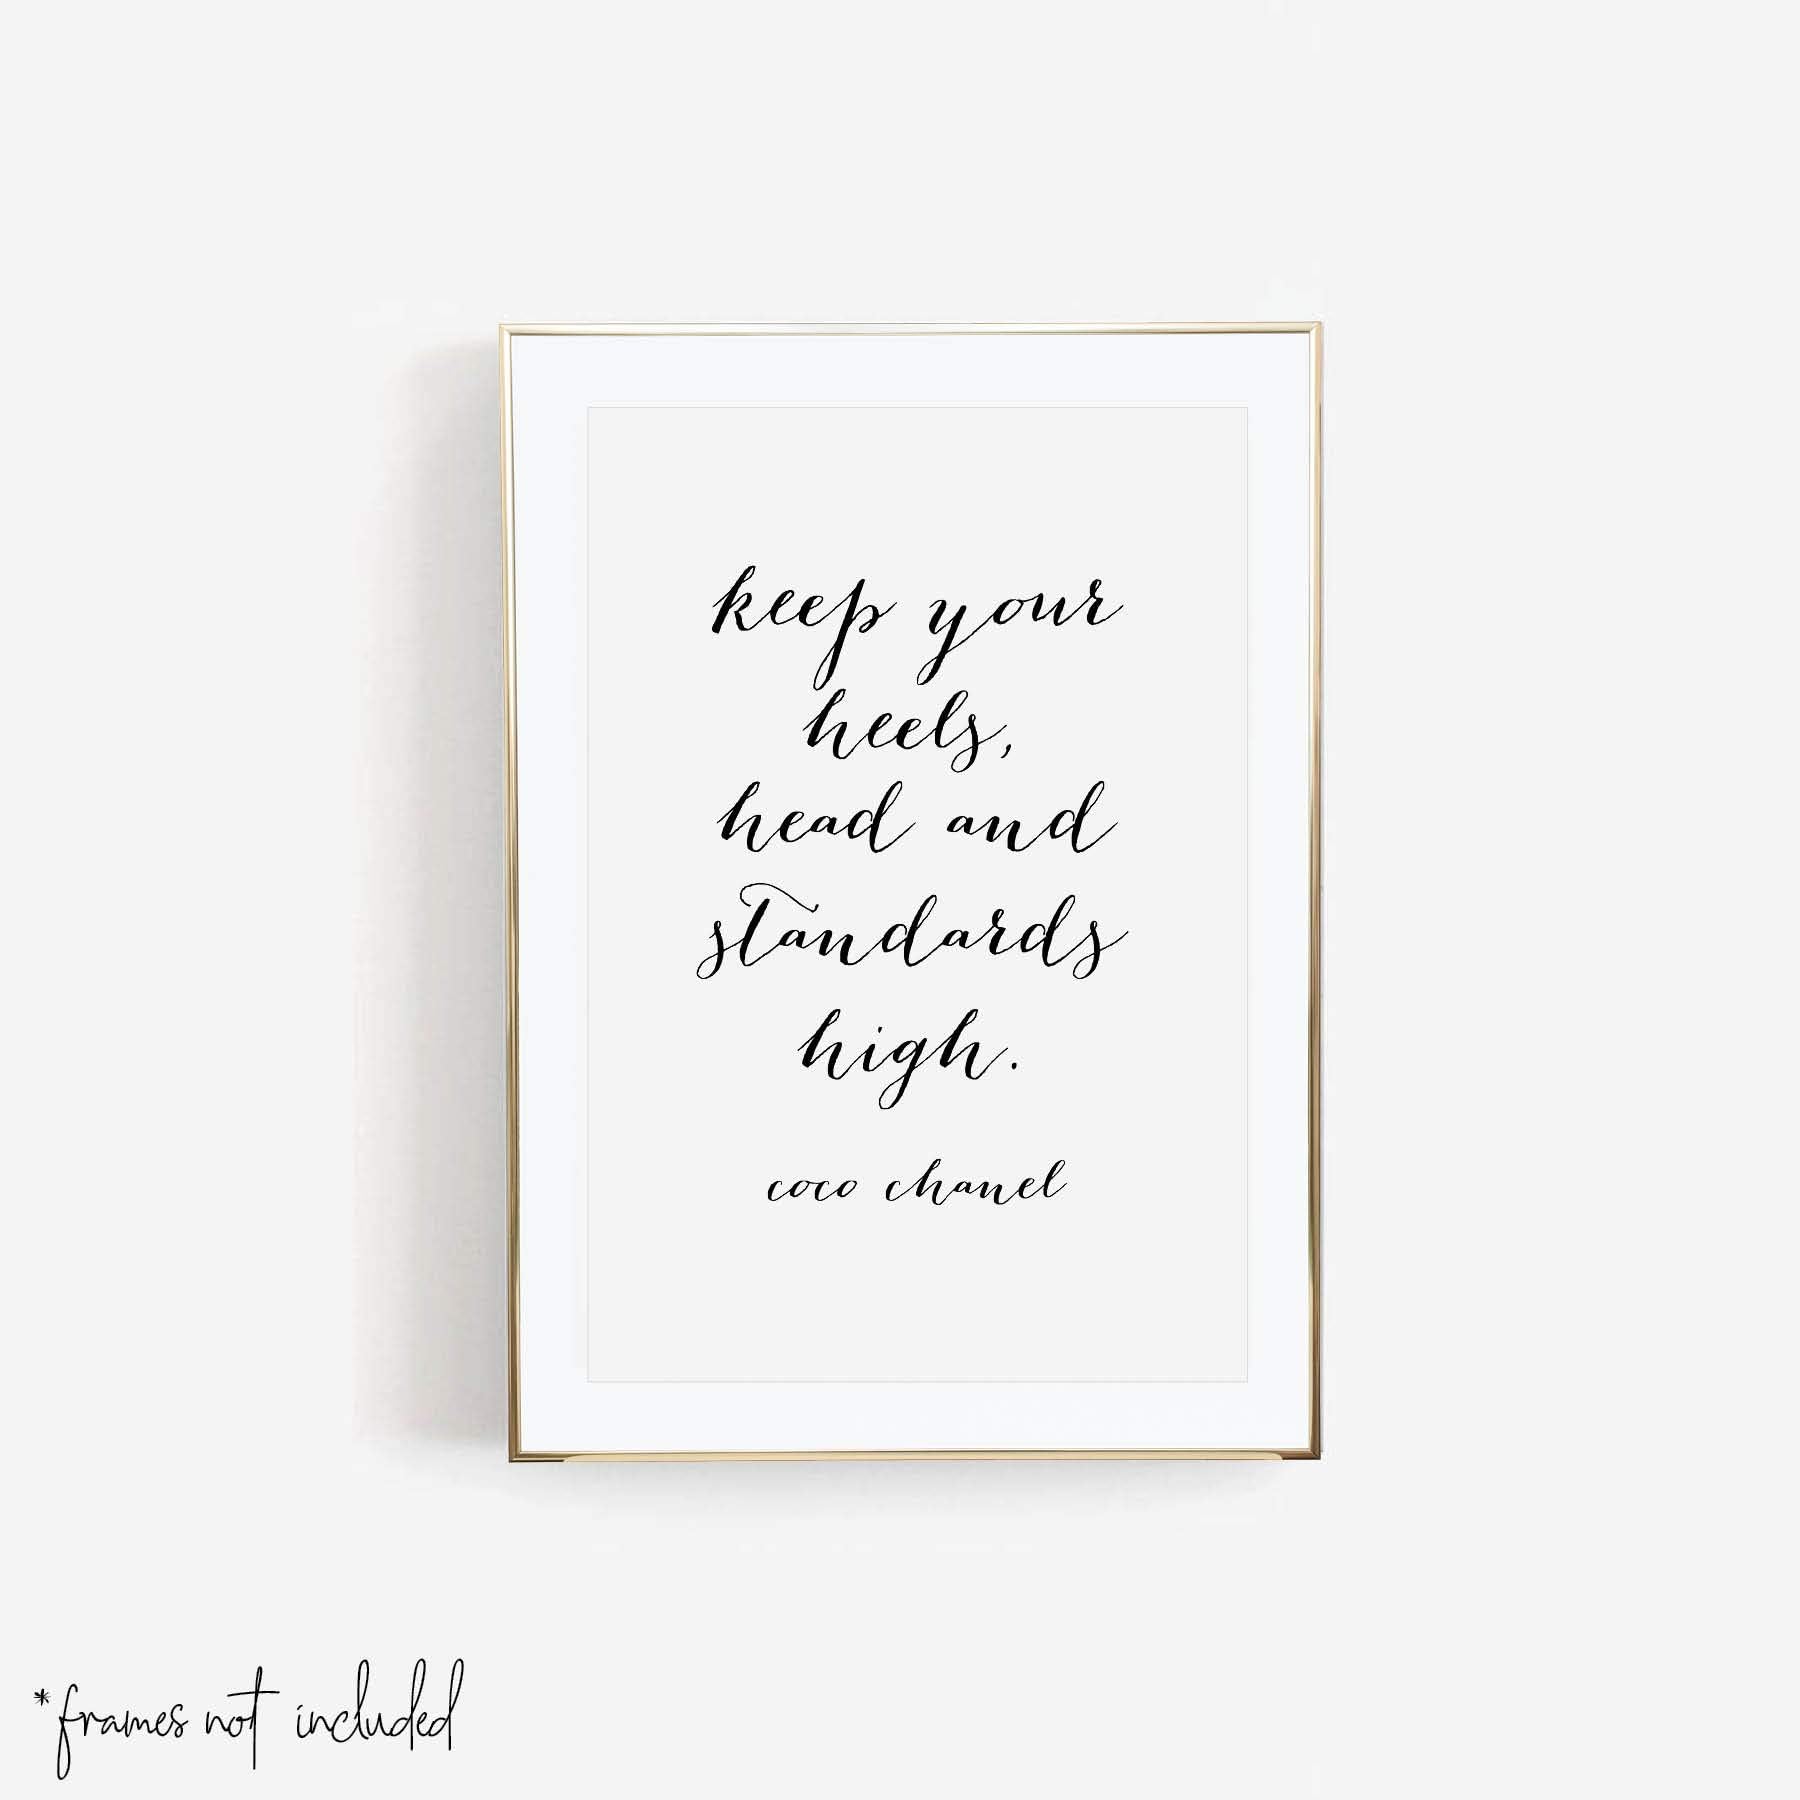 keep your
heels,
head and
standards
high.
coco chanel
*frames not included